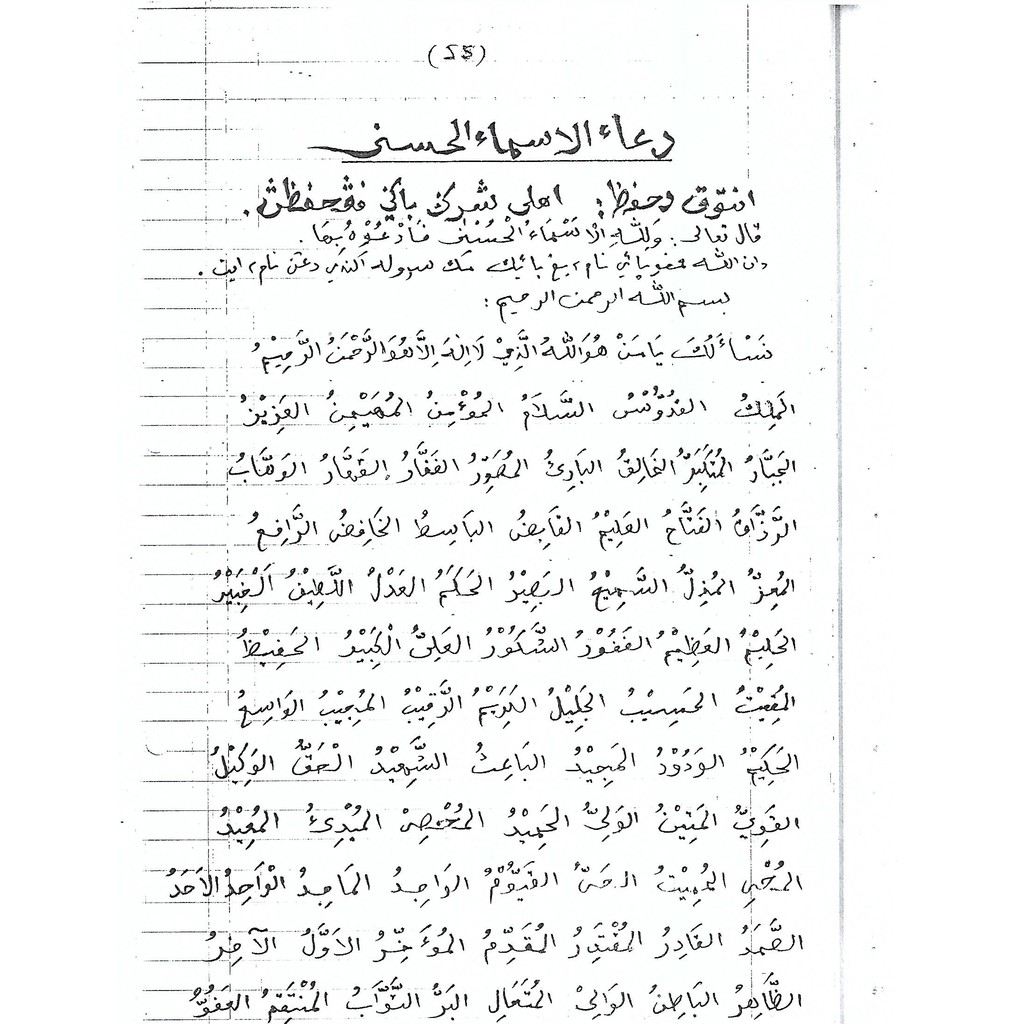 (25)
دعاء الاسماء الحسنى
انتوق دحفظ: اهلي شركن باكي فڠحفظن.
قال تعالى: وَلِلّٰهِ الْاَسْمَاءُ الْحُسْنٰى فَادْعُوْهُ بِهَا.
دان الله ممفوپاٴي نام٢ يڠ باٴيك مك سرولە اكندي دڠن نام٢ ايت.
بسم الله الرحمن الرحيم:
نَسْأَلُكَ يَا مَنْ هُوَ اللهُ الَّذِيْ لَا اِلٰهَ اِلَّا هُوَ الرَّحْمَنُ الرَّحِيْمُ
المَلِكُ القُدُّوْسُ السَّلَامُ المُؤْمِنُ المُهَيْمِنُ العَزِيْزُ
الجَبَّارُ المُتَكَبِّرُ الخَالِقُ البَارِئُ المُصَوِّرُ الغَفَّارُ القَهَّارُ الوَهَّابُ
الرَّزَّاقُ الفَتَّاحُ العَلِيْمُ القَابِضُ البَاسِطُ الخَافِضُ الرَّافِعُ
المُعِزُّ المُذِلُّ السَّمِيْعُ البَصِيْرُ الحَكَمُ العَدْلُ اللَّطِيْفُ الْخَبِيْرُ
الحَلِيْمُ العَظِيْمُ الغَفُوْرُ الشَّكُوْرُ العَلِيُّ الْكَبِيْرُ الحَفِيْظُ
المُقِيْتُ الحَسِيْبُ الجَلِيْلُ الكَرِيْمُ الرَّقِيْبُ المُجِيْبُ الوَاسِعُ
الحَكِيْمُ الوَدُوْدُ المَجِيْدُ البَاعِثُ الشَّهِيْدُ الْحَقُّ الوَكِيْلُ
القَوِيُّ المَتِيْنُ الوَلِيُّ الحَمِيْدُ المُحْصِىْ المُبْدِئُ المُعِيْدُ
المُحْيِ المُمِيْتُ الحَىُّ القَيُّوْمُ الوَاجِدُ المَاجِدُ الْوَاحِدُ الاَحَدُ
الصَّمَدُ القَادِرُ المُقْتَدِرُ المُقَدِّمُ المُؤَخِّرُ الاَوَّلُ الآخِرُ
الظَّاهِرُ البَاطِنُ الوَالِىْ المُتَعَالِ البَرُّ التَّوَّابُ المُنْتَقِمُ العَفُوُّ